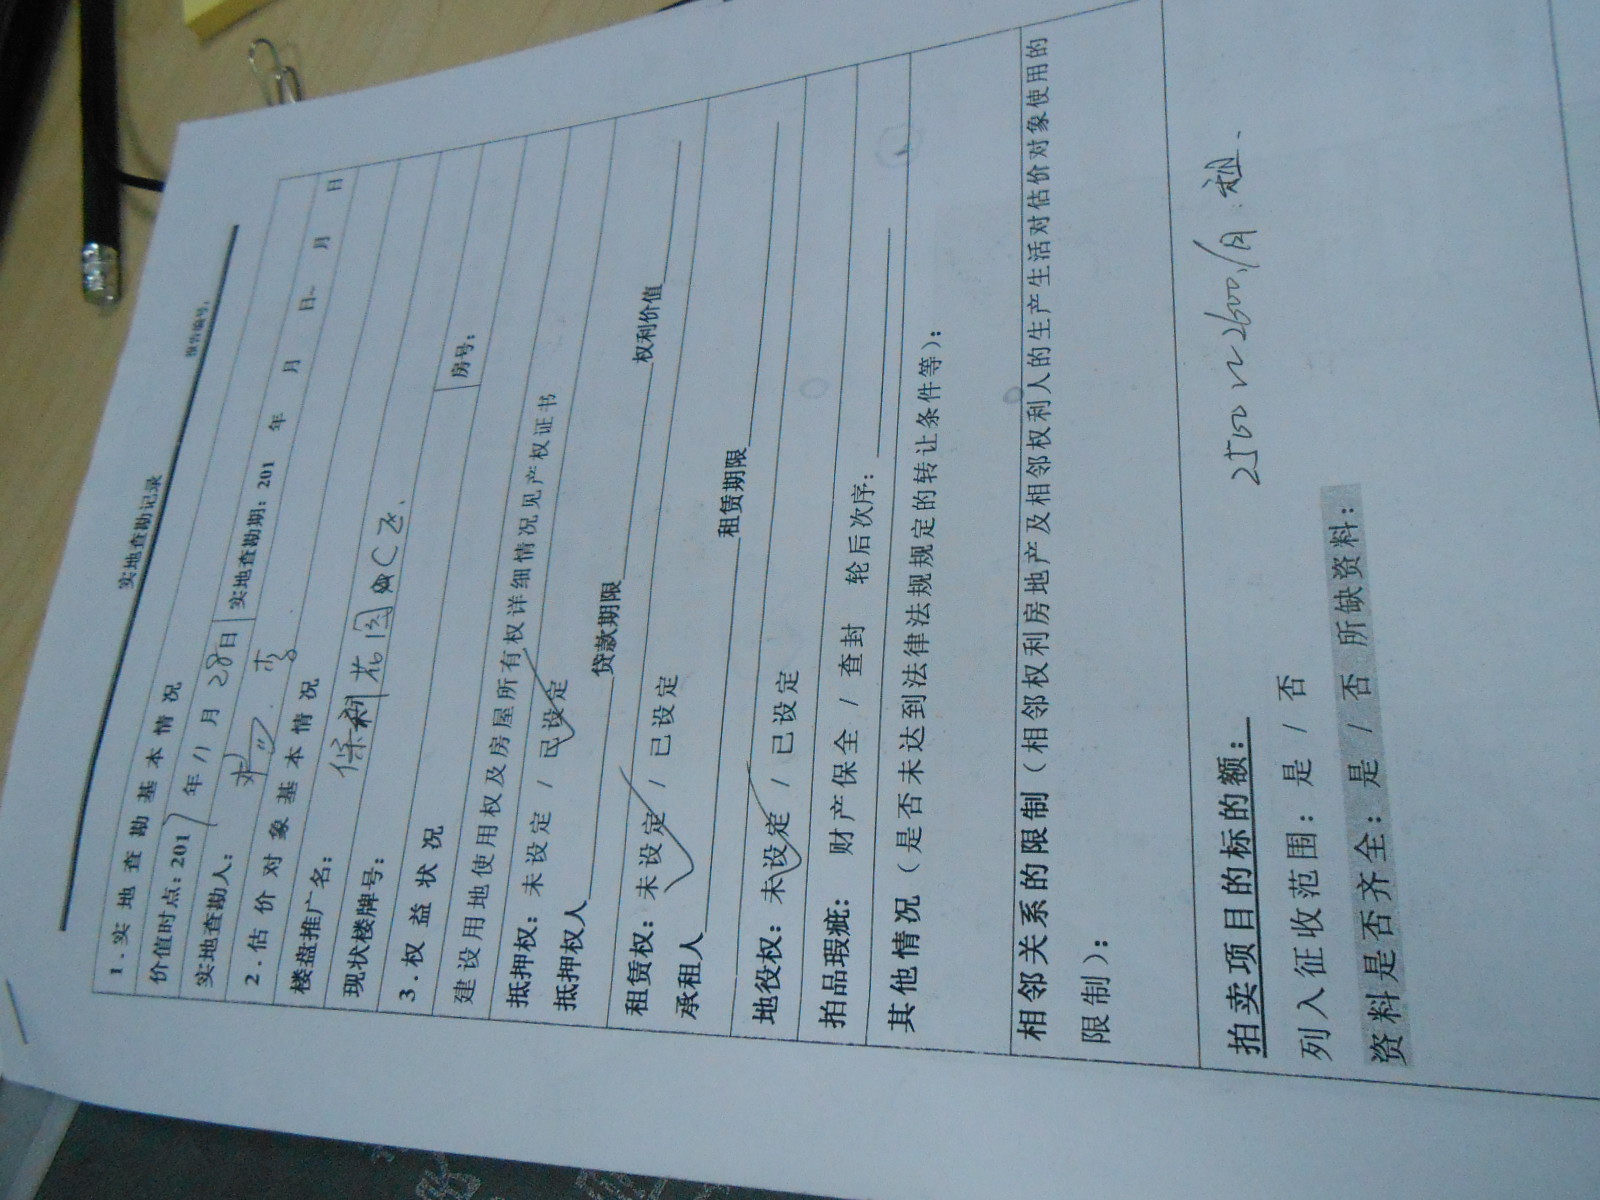 实地查勘记录
报告编号:
1.实地查勘基本情况
价值时点:2017年11月28日 实地查勘期:201 年 月 日~ 月 日
实地查勘人:
2.估价对象基本情况
楼盘推广名: 保利花园C区.
现状楼牌号: 房号:
3.权益状况
建设用地使用权及房屋所有权详细情况见产权证书
抵押权:未设定 / 已设定
抵押权人 贷款期限 权利价值
租赁权:未设定 / 已设定
承租人 租赁期限
地役权:未设定 / 已设定
拍品瑕疵: 财产保全 / 查封 轮后次序:
其他情况(是否未达到法律法规规定的转让条件等):
相邻关系的限制(相邻权利房地产及相邻权利人的生产生活对估价对象使用的
限制):
拍卖项目的标的额:
2500~2600/月.租.
列入征收范围:是 / 否
资料是否齐全:是 / 否 所缺资料: